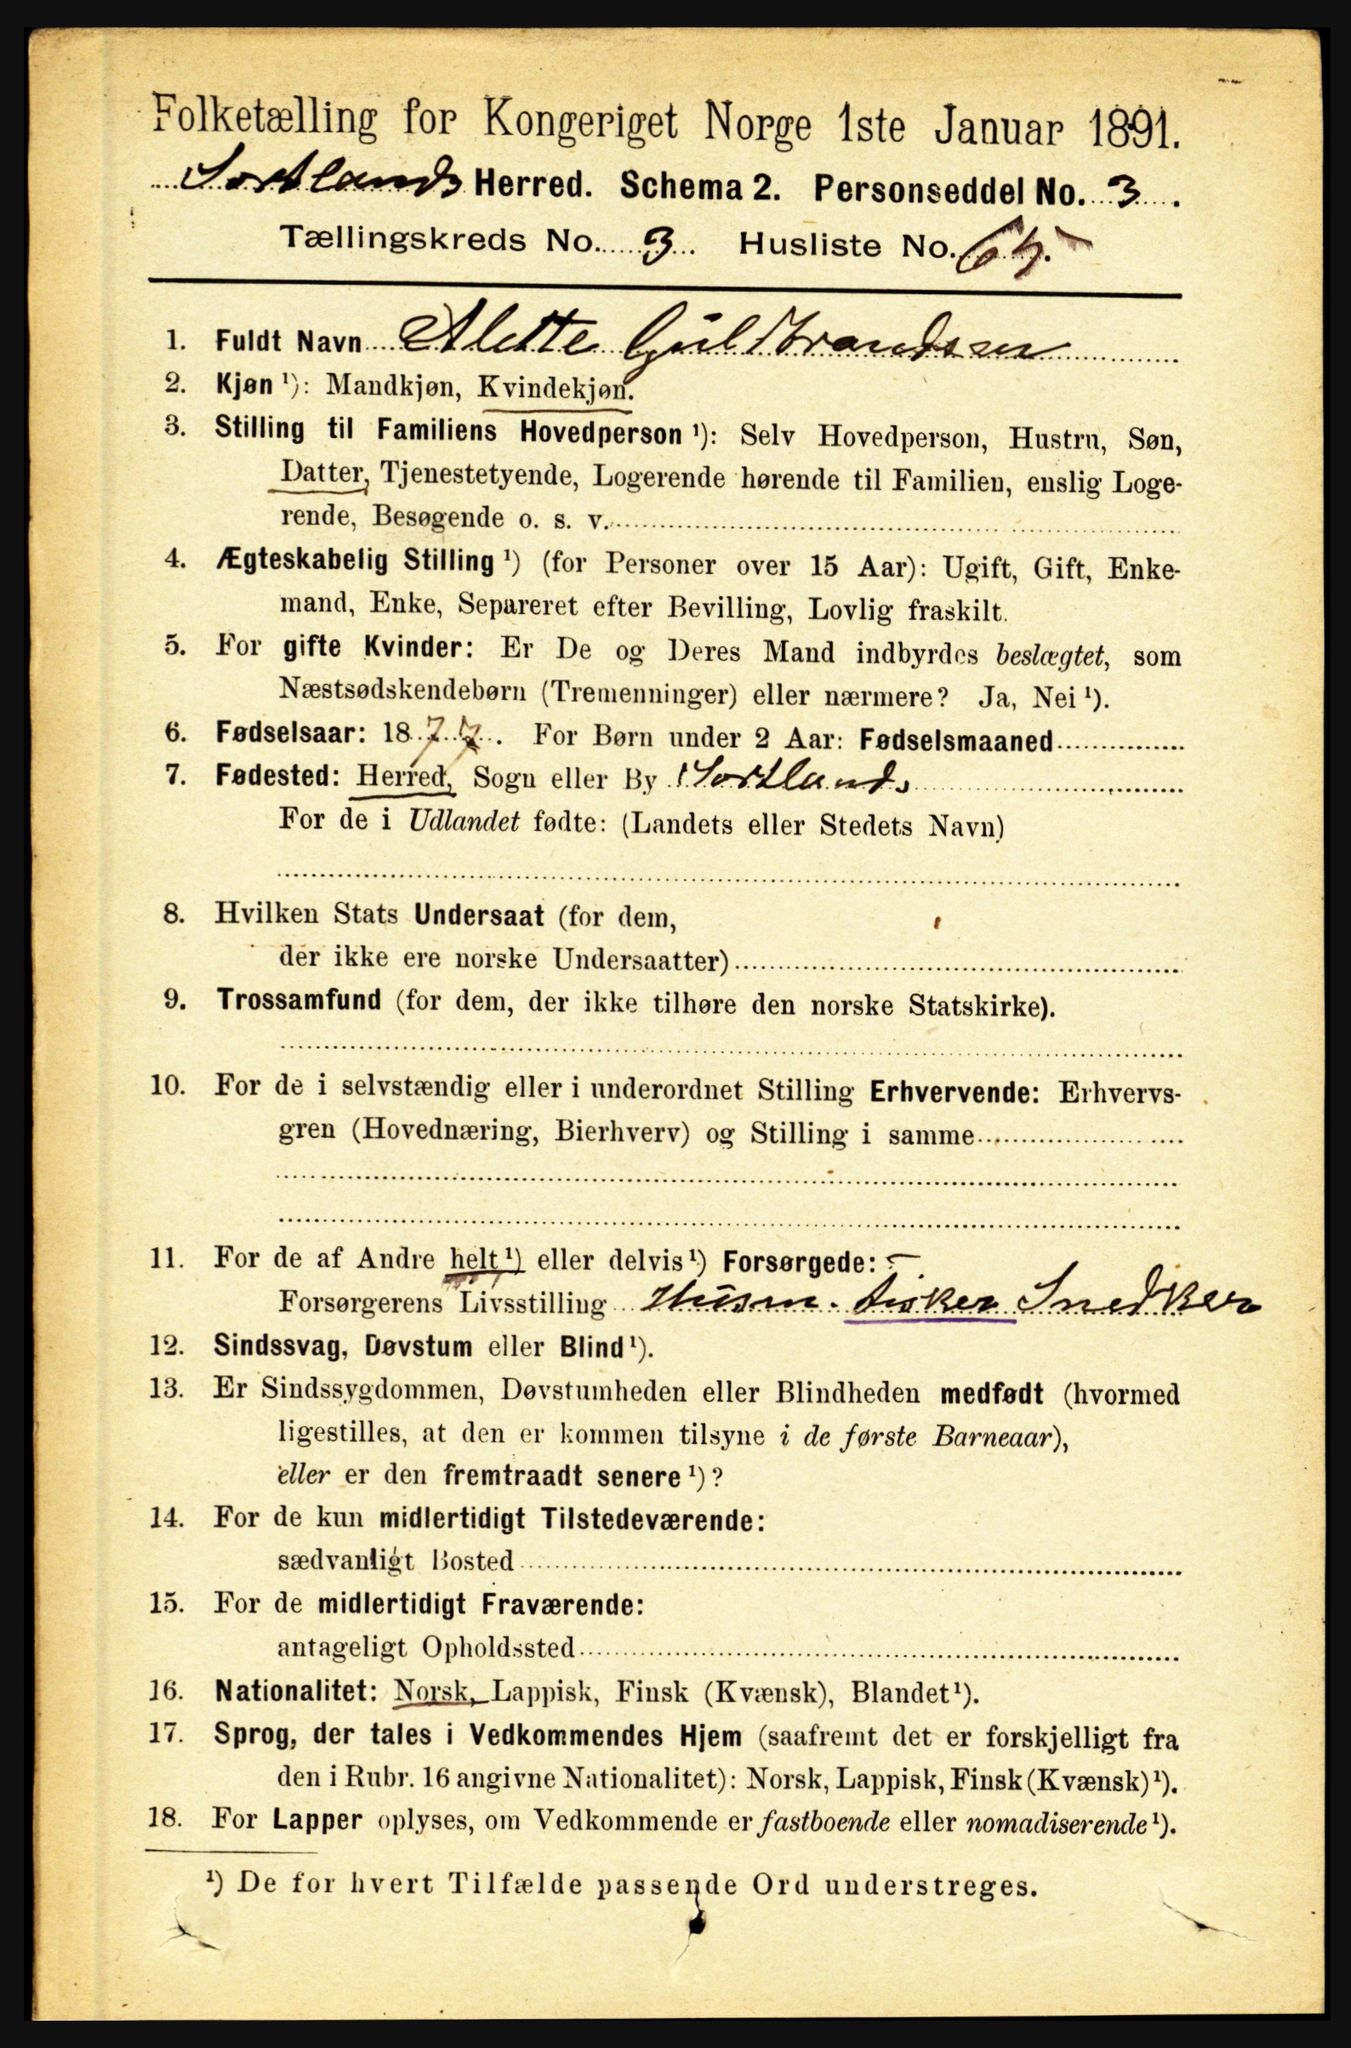 Folketælling for Kongeriget Norge 1ste Januar 1891.
Sortlands Herred. Schema 2. Personseddel No. 3.
Tællingskreds No. 3 Husliste No. 65.
1. Fuldt Navn Alette Guldbrandsen
2. Kjøn ¹): Mandkjøn, Kvindekjøn.
3. Stilling til Familiens Hovedperson ¹): Selv Hovedperson, Hustru, Søn,
Datter, Tjenestetyende, Logerende hørende til Familien, enslig Loge-
rende, Besøgende o. s. v.
4. Ægteskabelig Stilling ¹) (for Personer over 15 Aar): Ugift, Gift, Enke-
mand, Enke, Separeret efter Bevilling, Lovlig fraskilt.
5. For gifte Kvinder: Er De og Deres Mand indbyrdes beslægtet, som
Næstsødskendebørn (Tremenninger) eller nærmere? Ja, Nei ¹).
6. Fødselsaar: 1877. For Børn under 2 Aar: Fødselsmaaned
7. Fødested: Herred, Sogn eller By Sortlands
For de i Udlandet fødte: (Landets eller Stedets Navn)
8. Hvilken Stats Undersaat (for dem,
der ikke ere norske Undersaatter)
9. Trossamfund (for dem, der ikke tilhøre den norske Statskirke).
10. For de i selvstændig eller i underordnet Stilling Erhvervende: Erhvervs-
gren (Hovednæring, Bierhverv) og Stilling i samme
11. For de af Andre helt ¹) eller delvis ¹) Forsørgede:
Forsørgerens Livsstilling Husm. fisker Snedker
12. Sindssvag, Døvstum eller Blind ¹).
13. Er Sindssygdommen, Døvstumheden eller Blindheden medfødt (hvormed
ligestilles, at den er kommen tilsyne i de første Barneaar),
eller er den fremtraadt senere ¹)?
14. For de kun midlertidigt Tilstedeværende:
sædvanligt Bosted
15. For de midlertidigt Fraværende:
antageligt Opholdssted
16. Nationalitet: Norsk, Lappisk, Finsk (Kvænsk), Blandet ¹).
17. Sprog, der tales i Vedkommendes Hjem (saafremt det er forskjelligt fra
den i Rubr. 16 angivne Nationalitet): Norsk, Lappisk, Finsk (Kvænsk) ¹).
18. For Lapper oplyses, om Vedkommende er fastboende eller nomadiserende ¹).
¹) De for hvert Tilfælde passende Ord understreges.